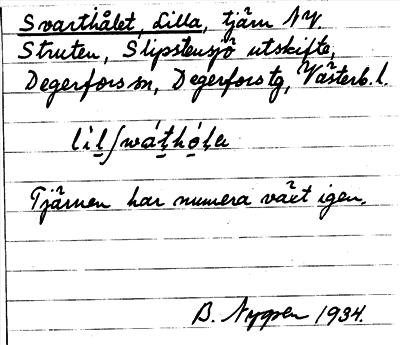 Svarthålet, Lilla, tjärn NV.
Struten, Slipstensjö utskifte,
Degerfors sn, Degerfors tg, Västerb. l.
Tjärnen har numera växt igen.
B. Nygren 1934.